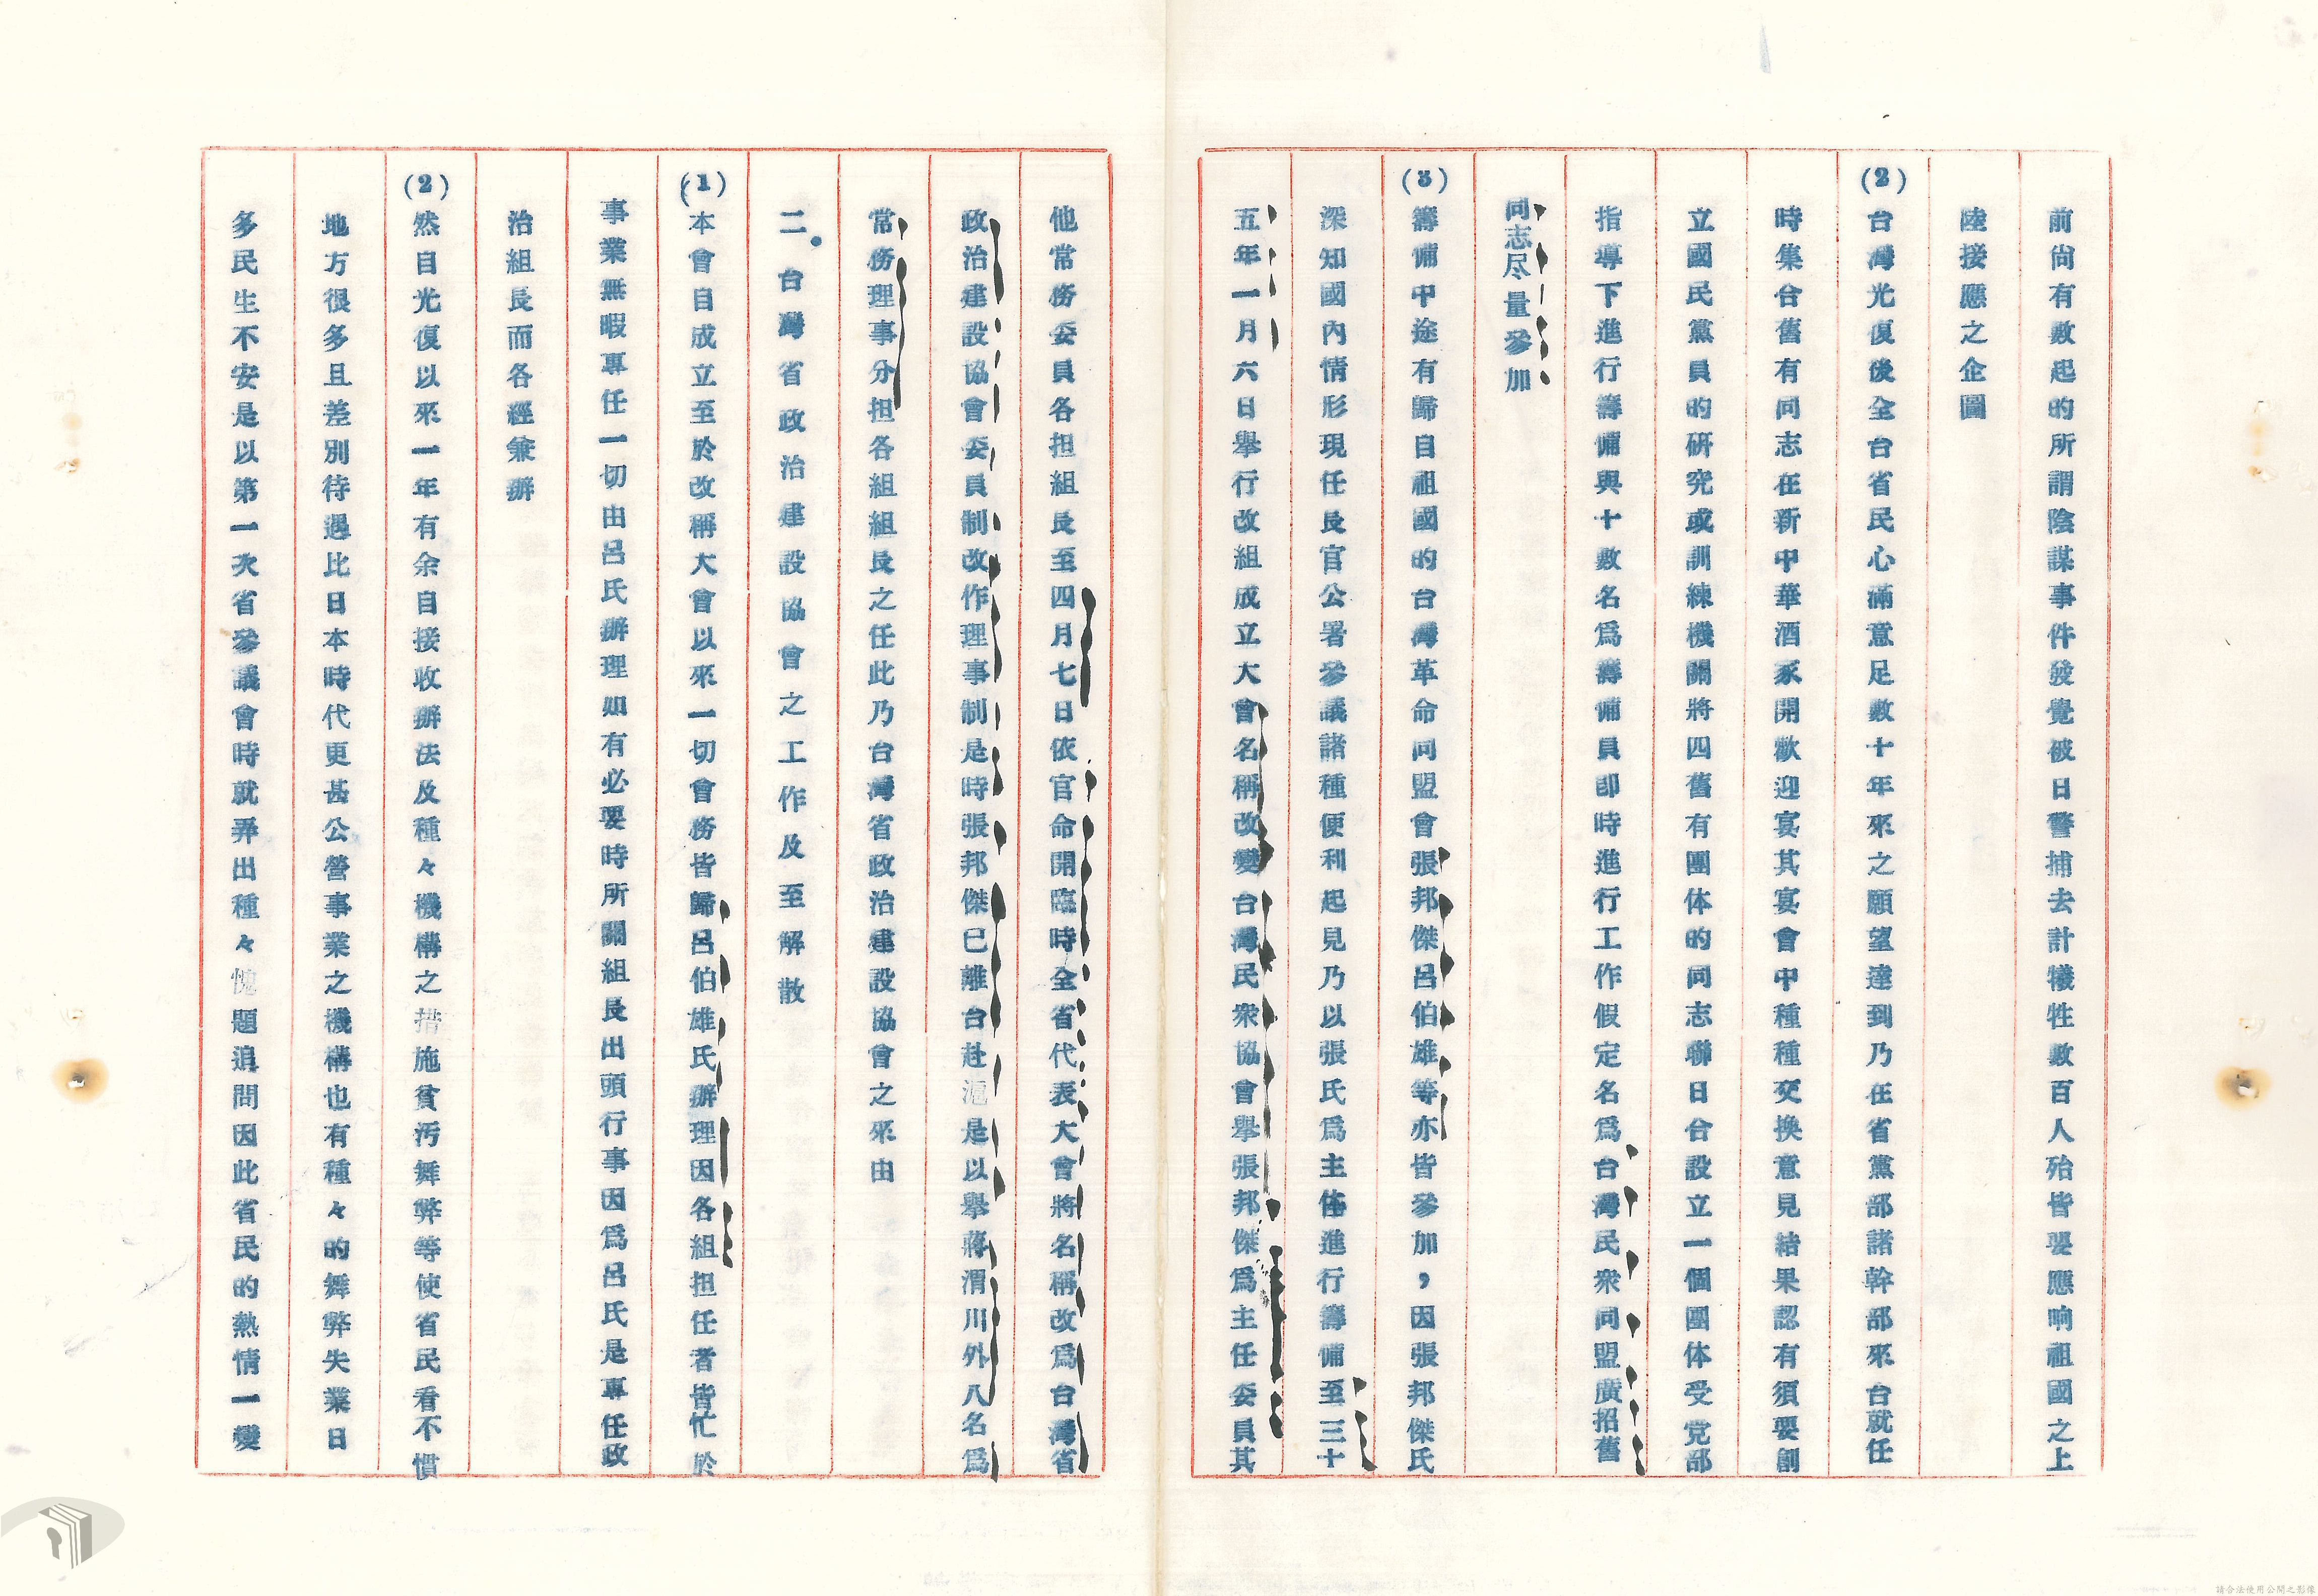 前尚有數起的所謂陰謀事件發覺被日警捕去計犧牲數百人殆皆要應响祖國之上
陸接應之企圖
(2)台灣光復後全台省民心滿意足數十年來之願望達到乃在省黨部諸幹部來台就任
時集合舊有同志在新中華酒家開歡迎宴其宴會中種種交換意見結果認有須要創
立國民黨員的研究或訓練機關將四舊有團体的同志聯日合設立一個團体受党部
指導下進行籌備與十數名為籌備員即時進行工作假定名為台灣民衆同盟廣招舊
同志尽量參加
(3)籌備中途有歸自祖國的台灣革命同盟會張邦傑呂伯雄等亦皆參加，因張邦傑氏
深知國內情形現任長官公署參議諸種便利起見乃以張氏為主体進行籌備至三十
五年一月六日舉行改組成立大會名稱改變台灣民衆協會舉張邦傑為主任委員其
他常務委員各担組長至四月七日依官命開臨時全省代表大會將名稱改為台灣省
政治建設協會委員制改作理事制是時張邦傑已離台赴滬是以舉蔣渭川外八名為
常務理事分担各組組長之任此乃台灣省政治建設協會之來由
二．台灣省政治建設協會之工作及至解散
(1)本會自成立至於改稱大會以來一切會務皆歸呂伯雄氏辦理因各組担任者皆忙於
事業無暇專任一切由呂氏辦理如有必要時所關組長出頭行事因為呂氏是專任政
治組長而各經兼辦
(2)然自光復以來一年有余自接收辦法及種々機構之措施貧污舞弊等使省民看不慣
地方很多且差別待遇比日本時代更甚公營事業之機構也有種々的舞弊失業日
多民生不安是以第一次省參議會時就弄出種々愧題追問因此省民的熱情一變
請合法使用公開之影像